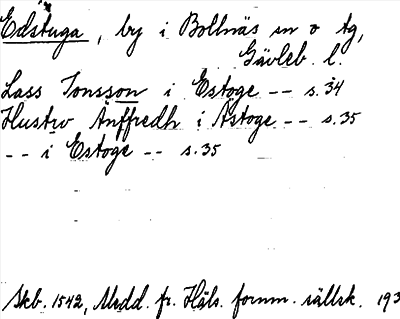 Edstuga, by i Bollnäs sn o tg,
Gävleb. l.
Lass Jonsson i Estoge -- s. 34
Hustrv Anffredh i Åstoge -- s. 35
-- i Estoge -- s. 35
Skb. 1542, Medd. fr. Häls. fornm. sällsk. 193